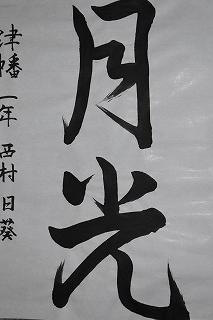 月光
津幡 一年 西村日葵